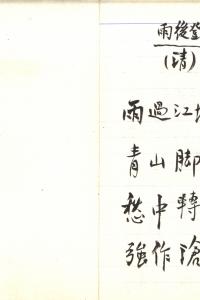 雨後登
(清)
雨過江
青山腳
愁中轉
強作滄